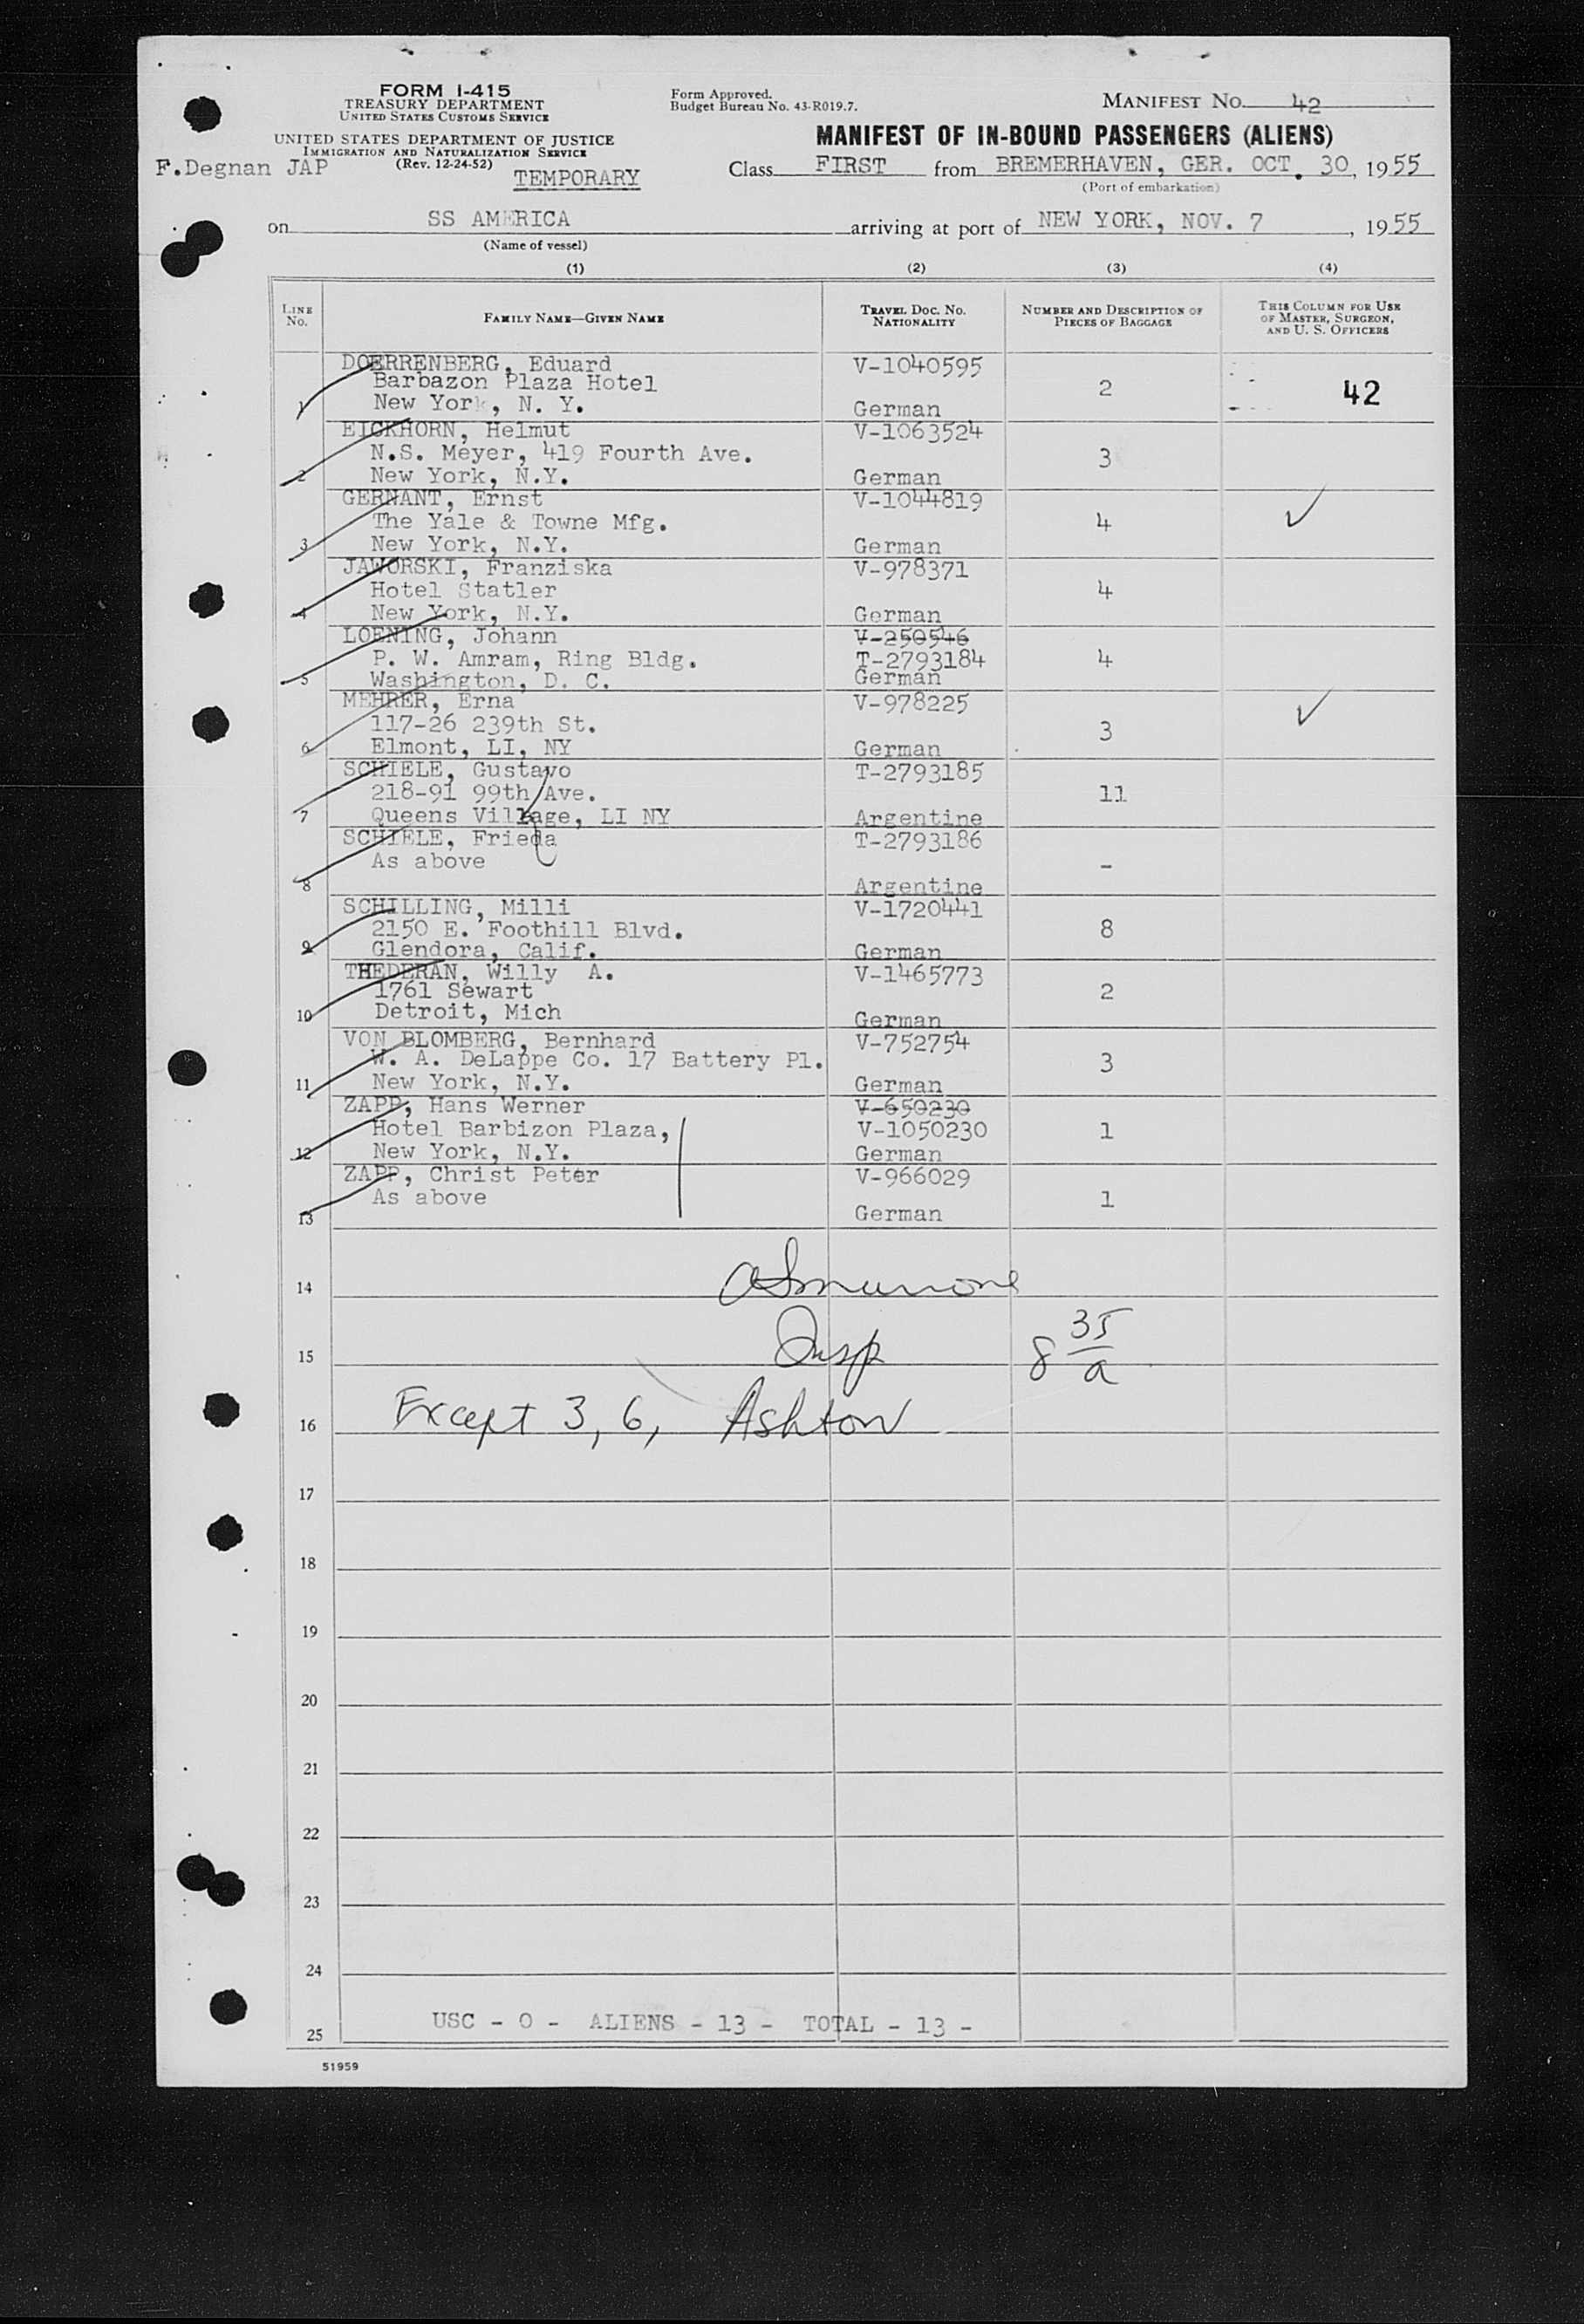 FORM I-415
TREASURY DEPARTMENT
UNITED STATES CUSTOMS SERVICE
UNITED STATES DEPARTMENT OF JUSTICE
IMMIGRATION AND NATURALIZATION SERVICE
(Rev. 12-24-52)
F.Degnan JAP
TEMPORARY
Form Approved.
Budget Bureau No. 43-R019.7.
MANIFEST NO. 42
MANIFEST OF IN-BOUND PASSENGERS (ALIENS)
Class FIRST from BREMERHAVEN, GER. OCT. 30, 1955
(Port of embarkation)
on SS AMERICA arriving at port of NEW YORK, NOV. 7, 1955
(Name of vessel)
(1) (2) (3) (4)
LINE No. FAMILY NAME—GIVEN NAME TRAVEL DOC. NO. NATIONALITY NUMBER AND DESCRIPTION OF PIECES OF BAGGAGE THIS COLUMN FOR USE OF MASTER, SURGEON, AND U. S. OFFICERS
DOERRENBERG, Eduard V-1040595
Barbazon Plaza Hotel 2 42
1 New York, N. Y. German
EICKHORN, Helmut V-1063524
N.S. Meyer, 419 Fourth Ave. 3
2 New York, N.Y. German
GERNANT, Ernst V-1044819
The Yale & Towne Mfg. 4 ✓
3 New York, N.Y. German
JAWORSKI, Franziska V-978371
Hotel Statler 4
4 New York, N.Y. German
LOENING, Johann V-250546
P. W. Amram, Ring Bldg. T-2793184 4
5 Washington, D. C. German
MEHRER, Erna V-978225
117-26 239th St. 3 ✓
6 Elmont, LI, NY German
SCHIELE, Gustavo T-2793185
218-91 99th Ave. 11
7 Queens Village, LI NY Argentine
SCHIELE, Frieda T-2793186
As above -
8 Argentine
SCHILLING, Milli V-1720441
2150 E. Foothill Blvd. 8
9 Glendora, Calif. German
THEDERAN, Willy A. V-1465773
1761 Sewart 2
10 Detroit, Mich German
VON BLOMBERG, Bernhard V-752754
W. A. DeLappe Co. 17 Battery Pl. 3
11 New York, N.Y. German
ZAPP, Hans Werner V-650230
Hotel Barbizon Plaza, V-1050230 1
12 New York, N.Y. German
ZAPP, Christ Peter V-966029
As above 1
13 German
14
15 Insp 8 35/a
16 Except 3, 6, Ashton
17
18
19
20
21
22
23
24
25 USC - 0 - ALIENS - 13 - TOTAL - 13 -
51959